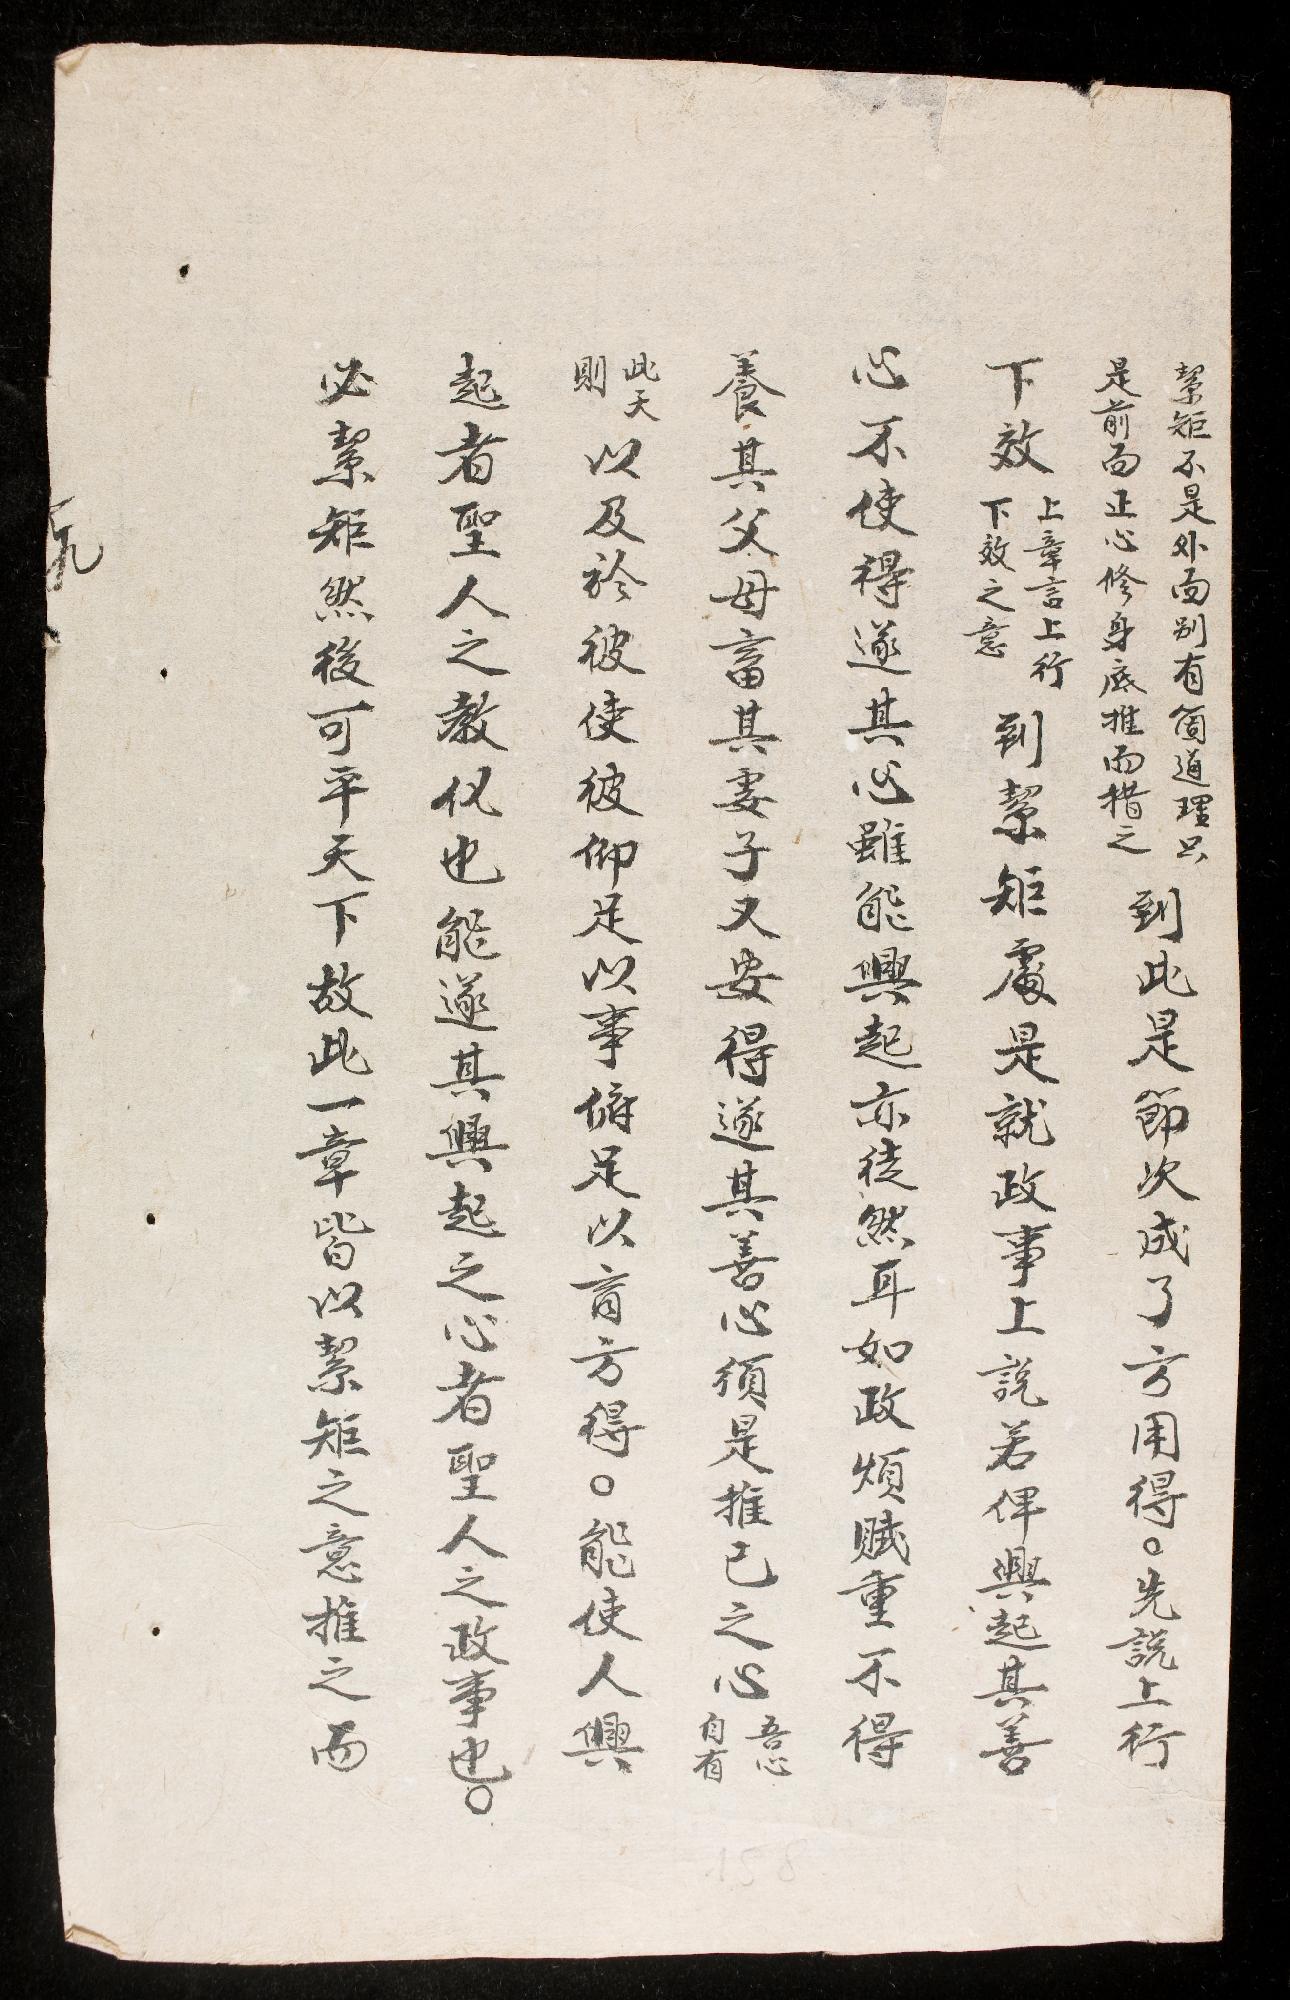 絜矩不是外面別有箇道理只
是前面正心修身底推而措之
到此是節次成了方用得○先說上行
下效
上章言上行
下效之意
到絜矩處是就政事上說若俾興起其善
心不使得遂其心雖能興起亦徒然耳如政煩賦重不得
養其父母畜其妻子又安得遂其善心須是推己之心
吾心
自有
此天
則
以及於彼使彼仰足以事俯足以育方得○能使人興
起者聖人之教化也能遂其興起之心者聖人之政事也○
必絜矩然後可平天下故此一章皆以絜矩之意推之而
158